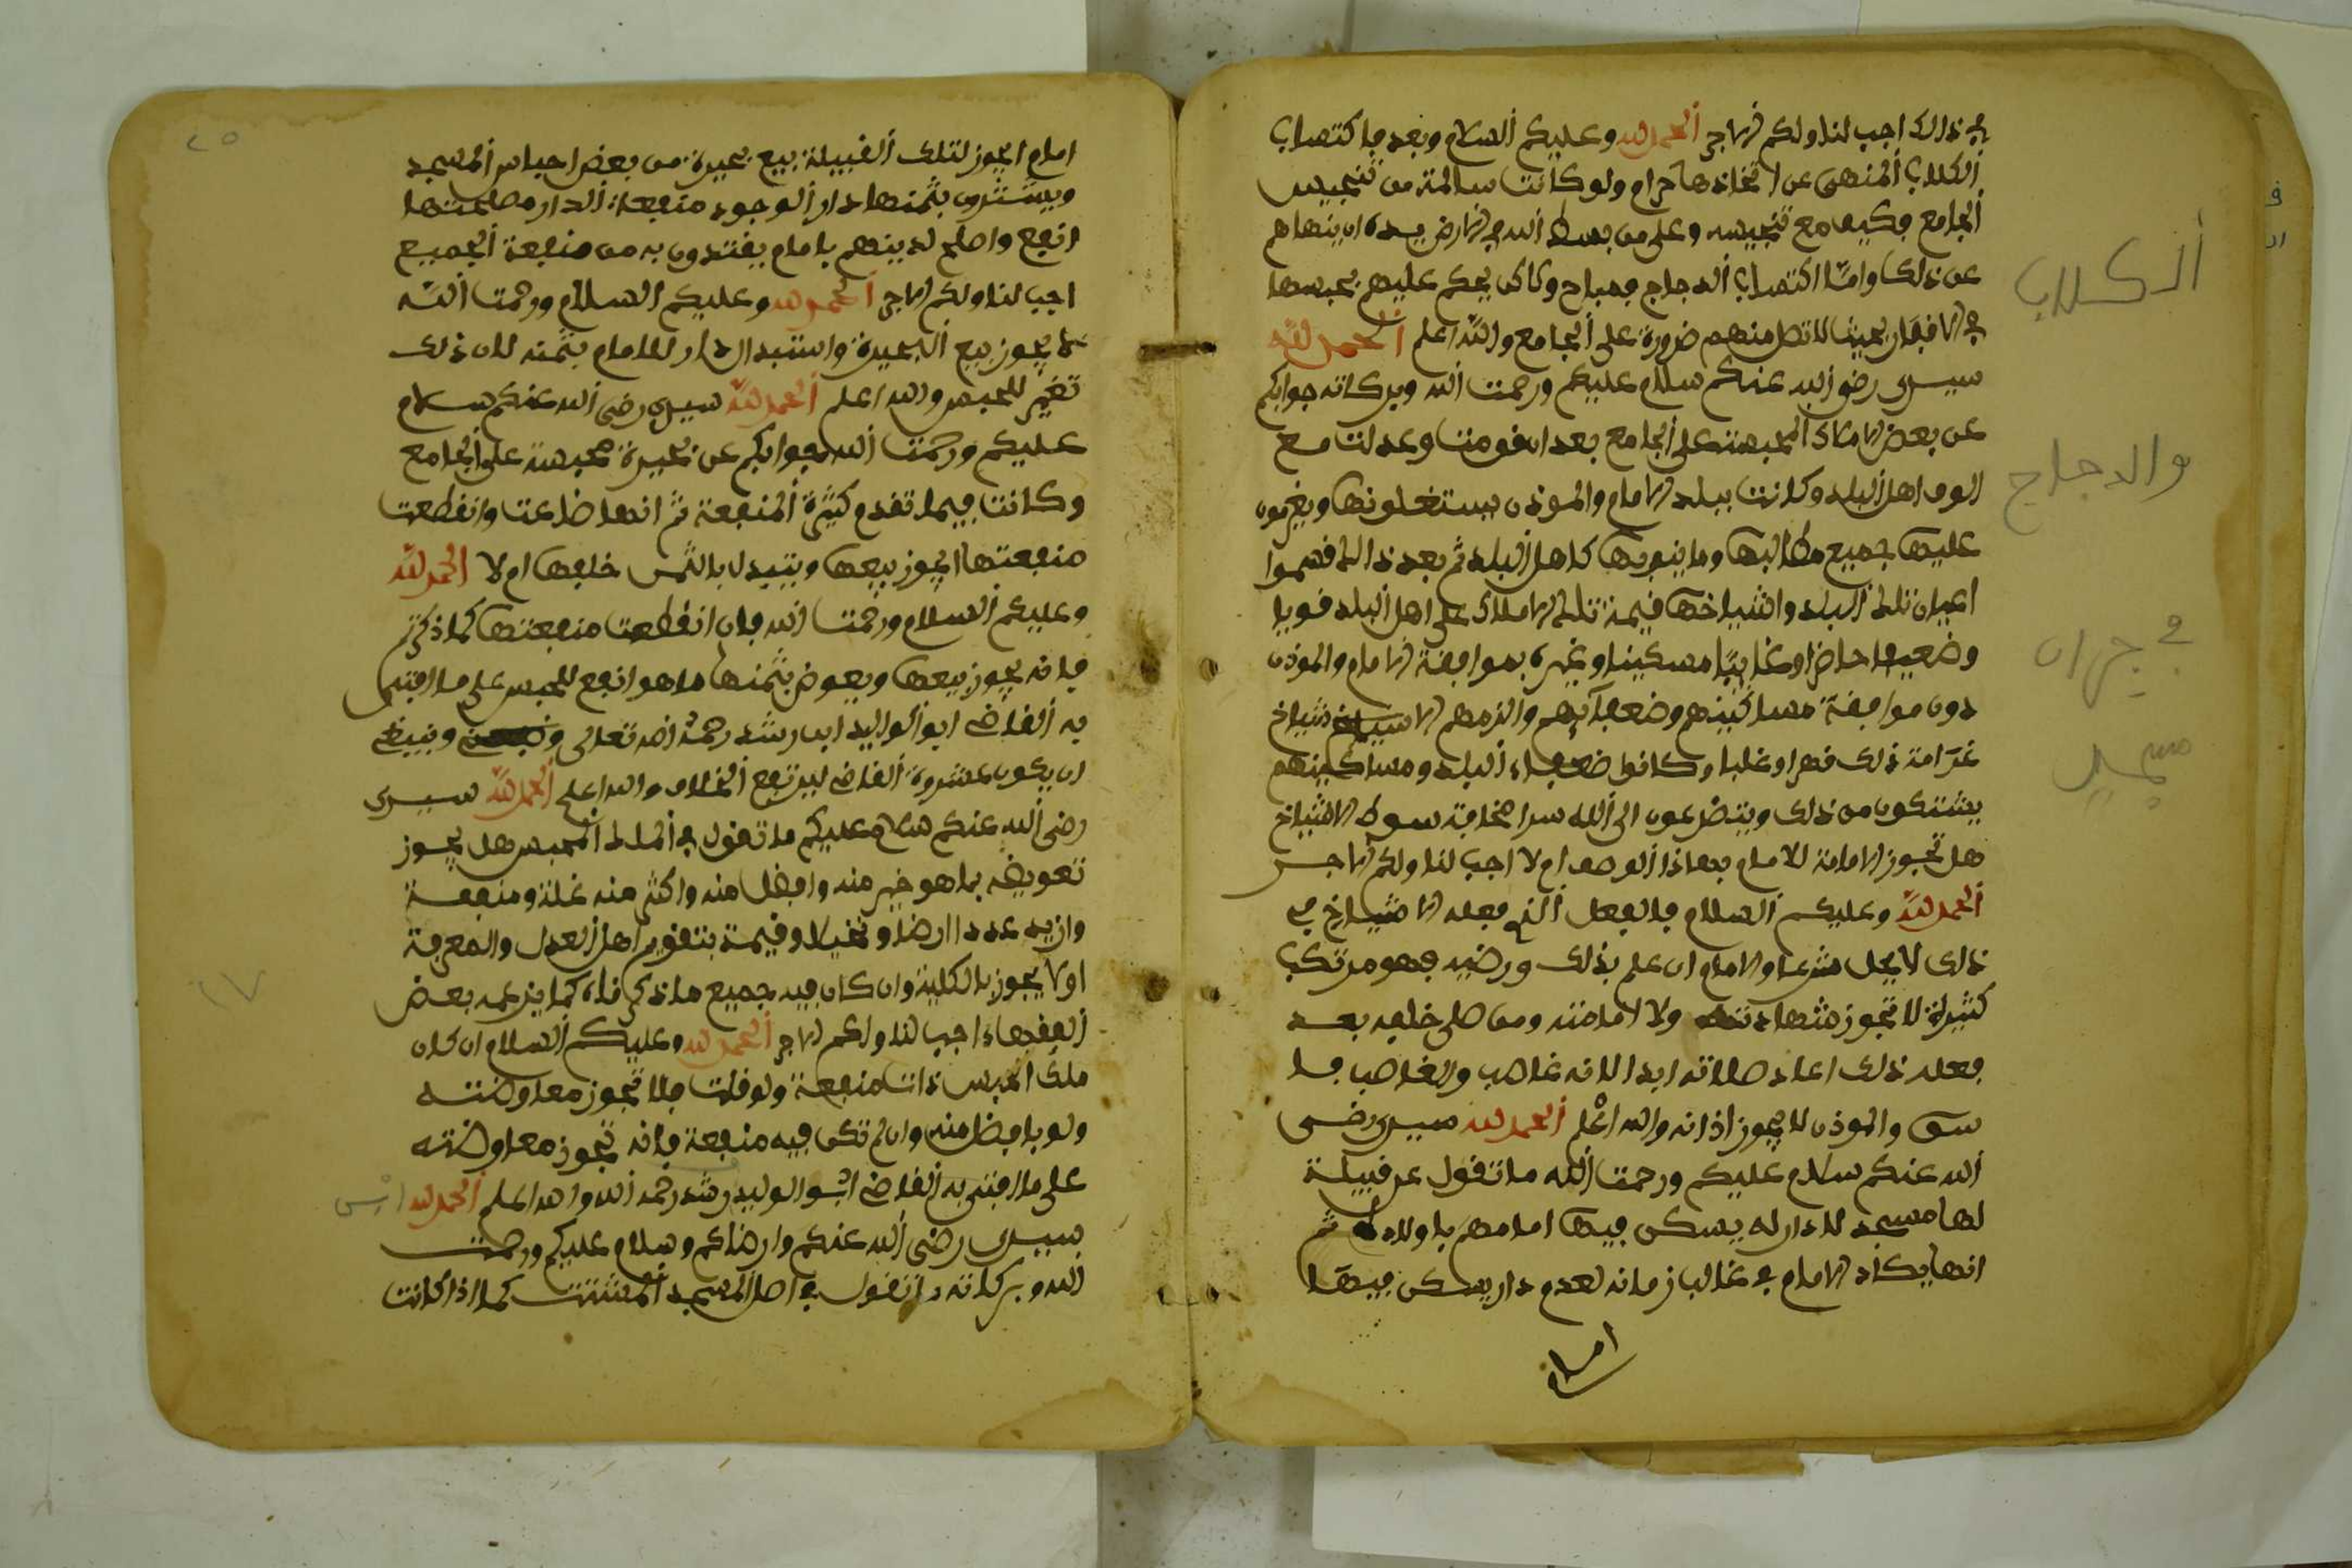 في ذالك اجب لنا ولكم الاجر الحمد لله وعليكم السلام وبعد فاكتساب
الكلاب المنهى عن اتخاذها حرام ولو كانت سالمة من تنجيس
الجامع فكيف مع تنجيسه وعلى من بسط الله في الارض يده ان ينهاهم
عن ذلك واما اكتساب الدجاج فمباح ولاكن يحكم عليهم بحبسها
في الاقفار بحيث لا تصل منهم ضرورة على الجامع والله اعلم الحمد لله
سيدي رضي الله عنكم سلام عليكم ورحمت الله وبركاته جوابكم
عن بعض الاملاك المحبسة على الجامع بعد ان قومت وعدلت مع
الوف اهل البلد وكانت بيلد الامام والموذن يستغلونها ويغرمون
عليها جميع مطالبها وما ينوبها كاهل البلد ثم بعد ذالك قسموا
اعيان تلك البلد واشياخها قيمة تلك الاملاك على اهل البلد قويا
وضعيفا حاضرا وغايبا مسكينا وغيره بموافقة الامام والموذن
دون موافقة مساكينهم وضعفآيهم والزمهم الاشياخ
غرامة ذلك قهرا وغلبا وكانوا ضعفاء البلد ومساكينهم
يشتكون من ذلك ويتضرعون الى الله سرا مخافة سوط الاشياخ
هل تجوز الامامة للامام بهاذا الوصف ام لا اجب لنا ولكم الاجر
الحمد لله وعليكم السلام فالفعل الذي فعله الاشياخ في
ذلك لا يحل شرعا والامام ان علم بذلك ورضيه فهو مرتكب
كثيرة لا تجوز شهادته ولا امامته ومن صلى خلفه بعد
فعله ذلك اعاد صلاته ابدا لانه غاصب والغاصب فا
سق والموذن لا يجوز اذانه والله اعلم الحمد لله سيدي رضى
الله عنكم سلام عليكم ورحمت الله ما تقول عن قبيلة
لها مسجد لا دار له يسكن فيها امامهم باولاده ثم
انها يكاد الامام في غالب زمانه لعدم دار يسكن فيها
امام
الكلاب
والدجاج
في جيران
مسجد
امام ايجوز لتلك القبيلة بيع بحيرة من بعض احباس المسجد
ويشترى بثمنها دار الوجود منفعة الدار مصلحتها
انفع واصلح لدينهم بامام يقتدون به من منفعة الجميع
اجب لنا ولكم الاجر الحمد لله وعليكم السلام ورحمت الله
لا يجوز بيع البحيرة واستبدال الدار للامام بثمنه لان ذلك
تغيير للحبس والله اعلم الحمد لله سيدي رضى الله عنكم سلام
عليكم ورحمت الله جوابكم عن بحيرة محبسة على الجامع
وكانت فيما تقدم كثيرة المنفعة ثم انها ضاعت وانقطعت
منفعتها ايجوز بيعها ويتبدل بالثمن خلفها ام لا الحمد لله
وعليكم السلام ورحمت الله فان انقطعت منفعتها كما ذكرتم
فانه يجوز بيعها ويعوض بثمنها ما هو انفع للحبس على ما افتى
به القاضي ابو الوليد ابن رشد رحمه الله تعالى وينبغي
ان يكون بمشورة القاضي ليرتفع الخلاف والله اعلم الحمد لله سيدي
رضى الله عنكم سلام عليكم ما تقول في الملك المحبس هل يجوز
تعويضه بما هو خير منه وافضل منه واكثر منه غلة ومنفعة
وازيد عددا ارضا ونخيلا وقيمة بتقويم اهل العدل والمعرفة
اولا يجوز بالكلية وان كان فيه جميع ما ذكرناه كما يزعمه بعض
الفقهاء اجب لنا ولكم الاجر الحمد لله وعليكم السلام ان كان
ملك الحبس ذات منفعة ولو قلت فلا تجوز معاوضته
ولو بافضل منه وان لم تكن فيه منفعة فانه تجوز معاوضته
على ما افتى به القاضي ابو الوليد رشد رحمه الله والله اعلم الحمد لله
سيدي رضى الله عنكم وارضاكم وسلام عليكم ورحمت
الله وبركاته ما تقول في اصل المسجد المشتت كما اذا كانت
٢٥
١٧